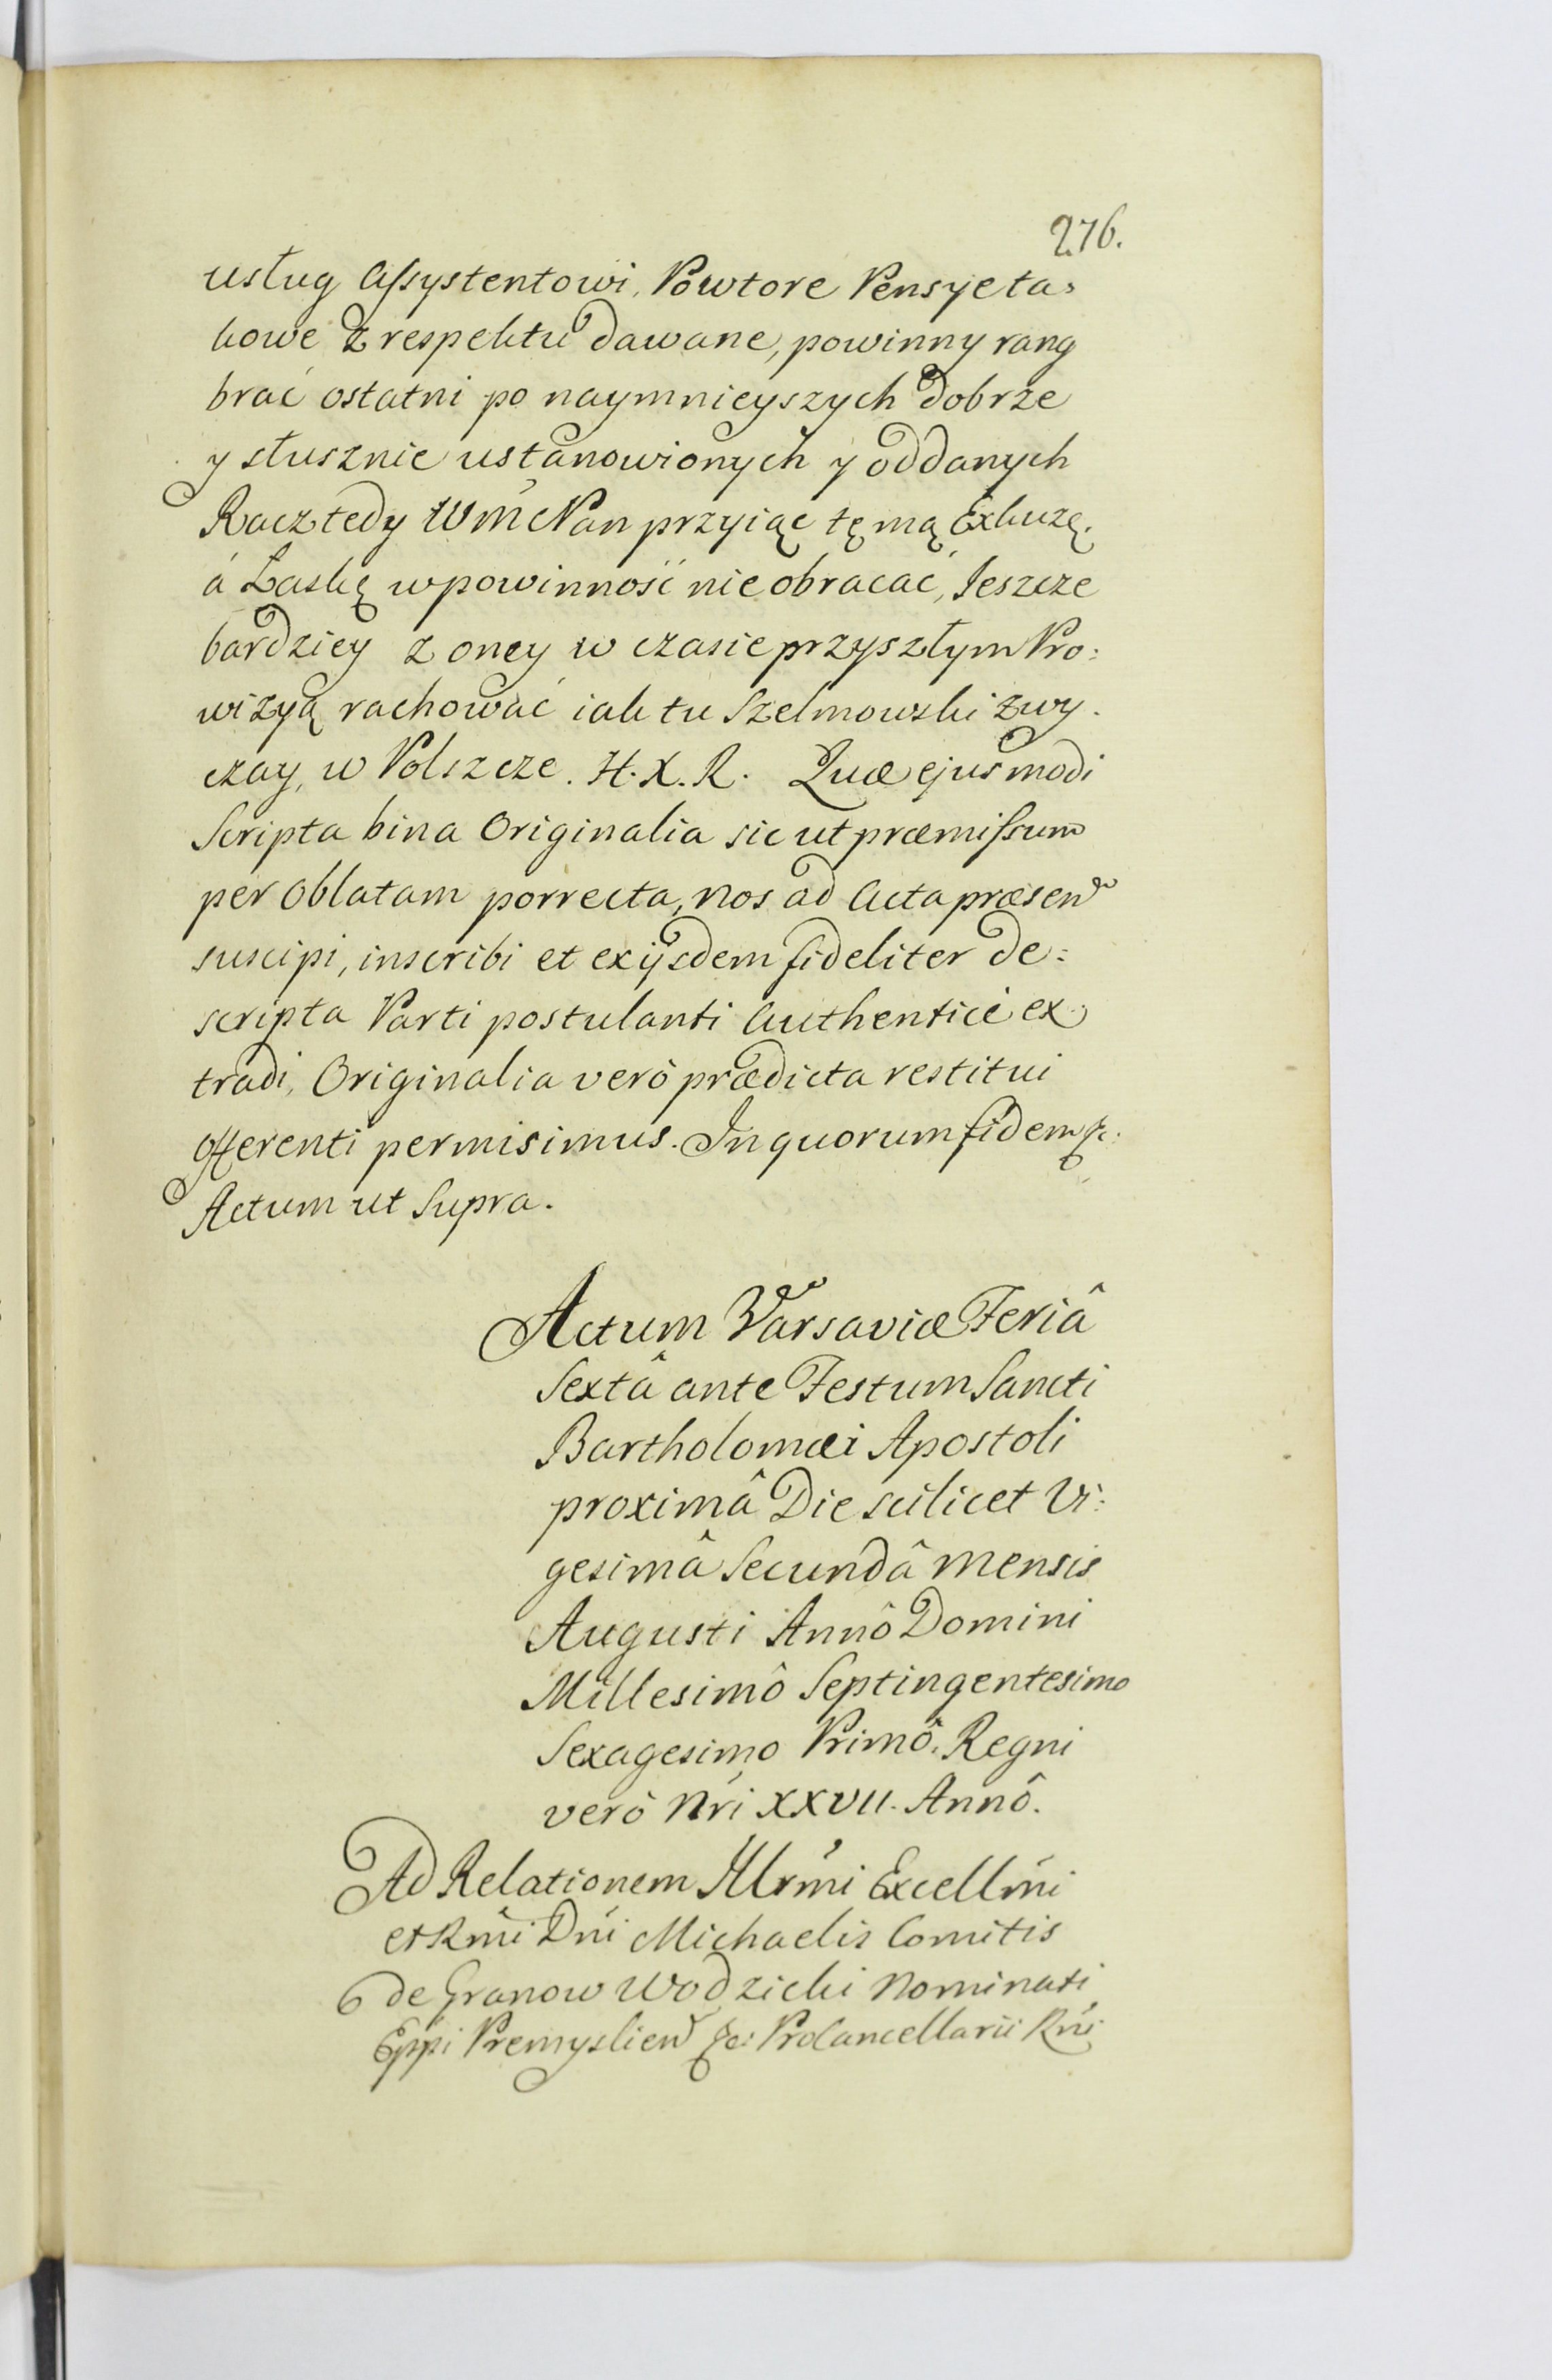 276.
usług Assystentowi, Powtore Pensye ta=
kowe z respektu dawane, powinny rang
brać ostatni po naymnieyszych dobrze
y słusznie ustanowionych y oddanych
Racz tedy WḾ Pan przyiąc tę mą Exkuzę.
á Łaskę w powinność nie obracać, Jeszcze
bardziey z oney w czasie przyszłym Pro:
wizyą rachować iak tu Szelmowski zwy.
czay, w Polszcze. H. X. R. Quæ ejusmodi
Scripta bina Originalia sic ut præmissum
per Oblatam porrecta, Nos ad Acta præsen
suscipi, inscribi et ex ijsdem fideliter de:
scripta Parti postulanti Authenticè ex
tradi, Originalia verò prædicta restitui
offerenti permisimus. In quorum fidem &c:
Actum ut Supra.
Actum Varsaviæ Feriâ
Sextâ ante Festum Sancti
Bartholomæi Apostoli
proximâ Die scilicet Vi:
gesimâ Secundâ Mensis
Augusti Annô Domini
Millesimô Septingentesimo
Sexagesimo Primô. Regni
verò Nri XXVII. Annô.
Ad Relationem Illrmi Excellmi
et Rmi Dni Michaelis Comitis
de Granow Wodzicki Nominati
Eppi Premyslien &c: ProCancellarii Rni